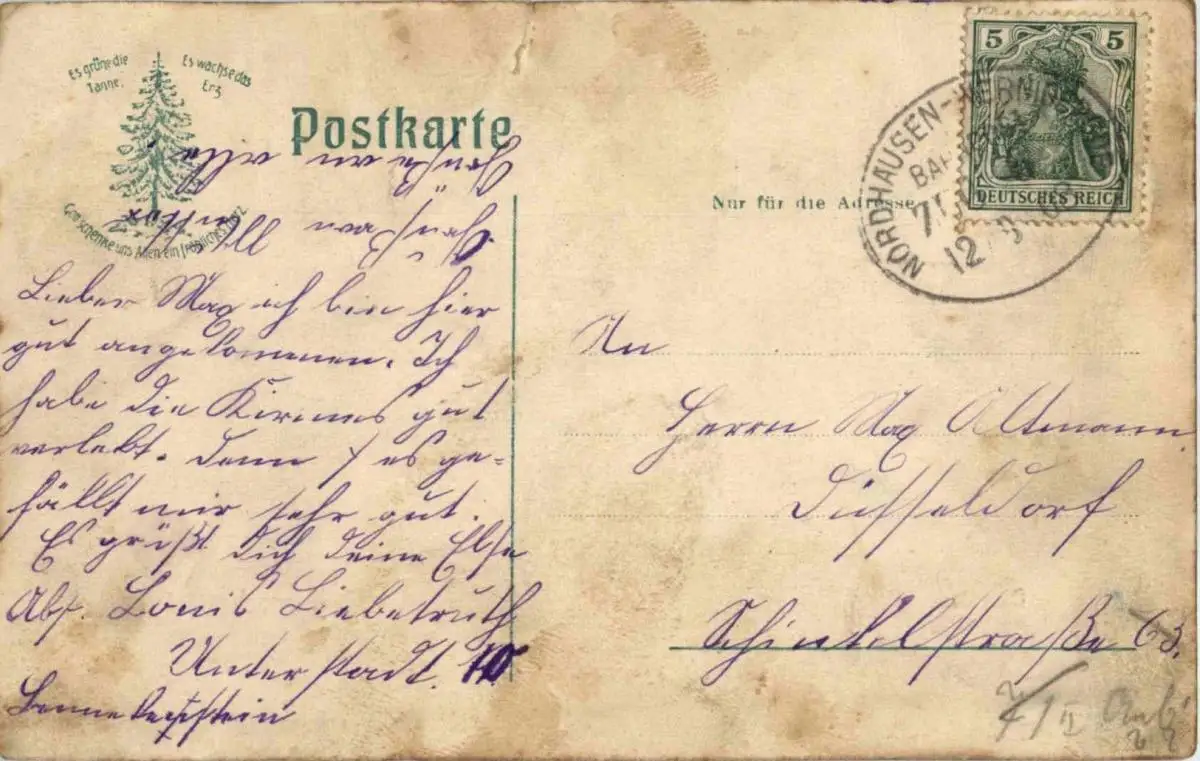 Es grüne die
Tanne,
Es wachse das
Erz
Gott schenke uns Allen ein fröhliches Herz
Postkarte
Nur für die Adresse
5 5
DEUTSCHES REICH
NORDHAUSEN-WERNIGERODE
BAHNPOST
12
Lieber Max ich bin hier
gut angekommen. Ich
habe die Kirmes gut
verlebt. denn es ge=
fällt mir sehr gut.
Es grüßt dich deine Else
Abs. Louis Liebetruth
Unterstadt.
Benneckenstein
An
Herrn Max Altmann
Düsseldorf
Schinkelstraße 63.